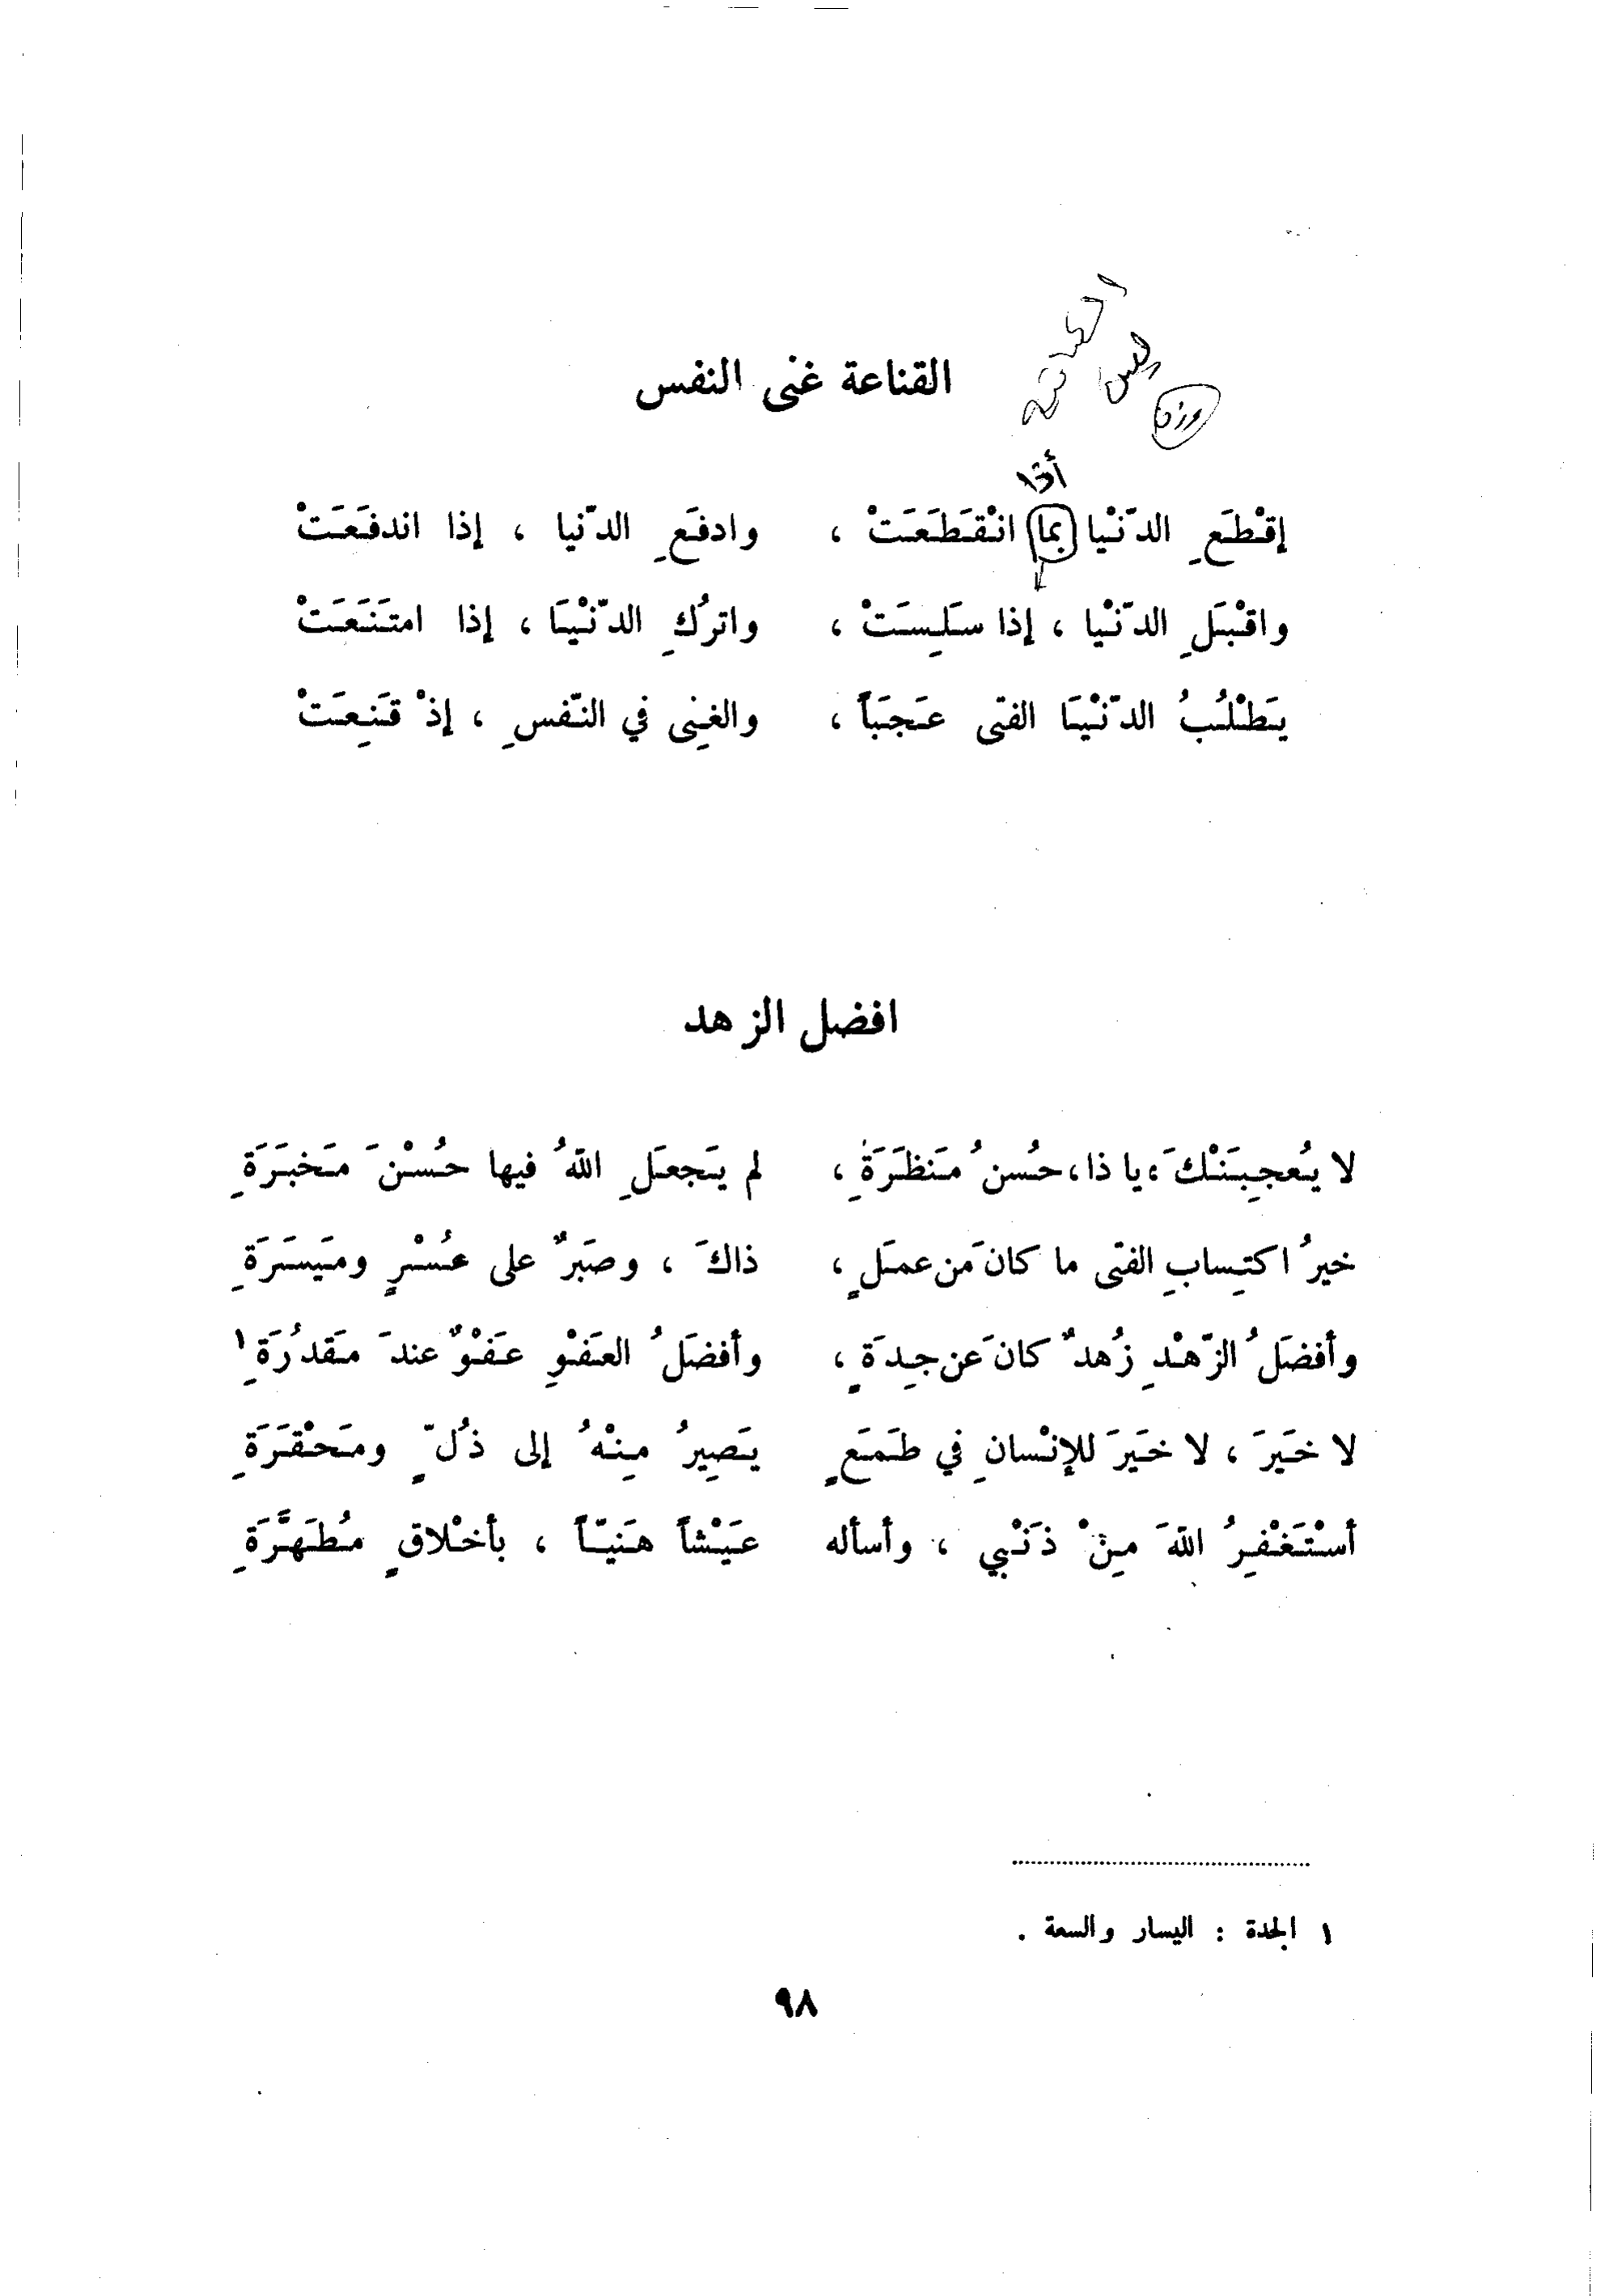 القناعة غنى النفس
أذا
إقْطَعِ الدّنْيا بما انْقَطَعَتْ ، وادفَعِ الدّنيا ، إذا اندفَعَتْ
واقْبَلِ الدّنْيا ، إذا سَلِسَتْ ، واترُكِ الدّنْيَا ، إذا امتَنَعَتْ
يَطْلُبُ الدّنْيَا الفتى عَجَبَاً ، والغنِى في النّفسِ ، إذْ قَنِعَتْ
افضل الزهد
لا يُعجِبَنْكَ ، يا ذا ، حُسنُ مَنظَرَةٍ ، لم يَجعَلِ اللهُ فيها حُسْنَ مَخبَرَةِ
خيرُ اكتِسابِ الفتى ما كانَ مَن عمَلٍ ، ذاكَ ، وصَبرٌ على عُسْرٍ ومَيسَرَةِ
وأفضَلُ الزّهْدِ زُهدٌ كانَ عَن جِدَةٍ ، وأفضَلُ العَفْوِ عَفْوٌ عندَ مَقدُرَةِ ١
لا خَيرَ ، لا خَيرَ للإنْسانِ في طَمَعٍ يَصِيرُ مِنْهُ إلى ذُلٍّ ومَحْقَرَةِ
أسْتَغْفِرُ اللهَ مِنْ ذَنْبي ، وأسأله عَيْشاً هَنيّاً ، بأخْلاقٍ مُطَهَّرَةِ
١ الجدة : اليسار والسعة .
٩٨